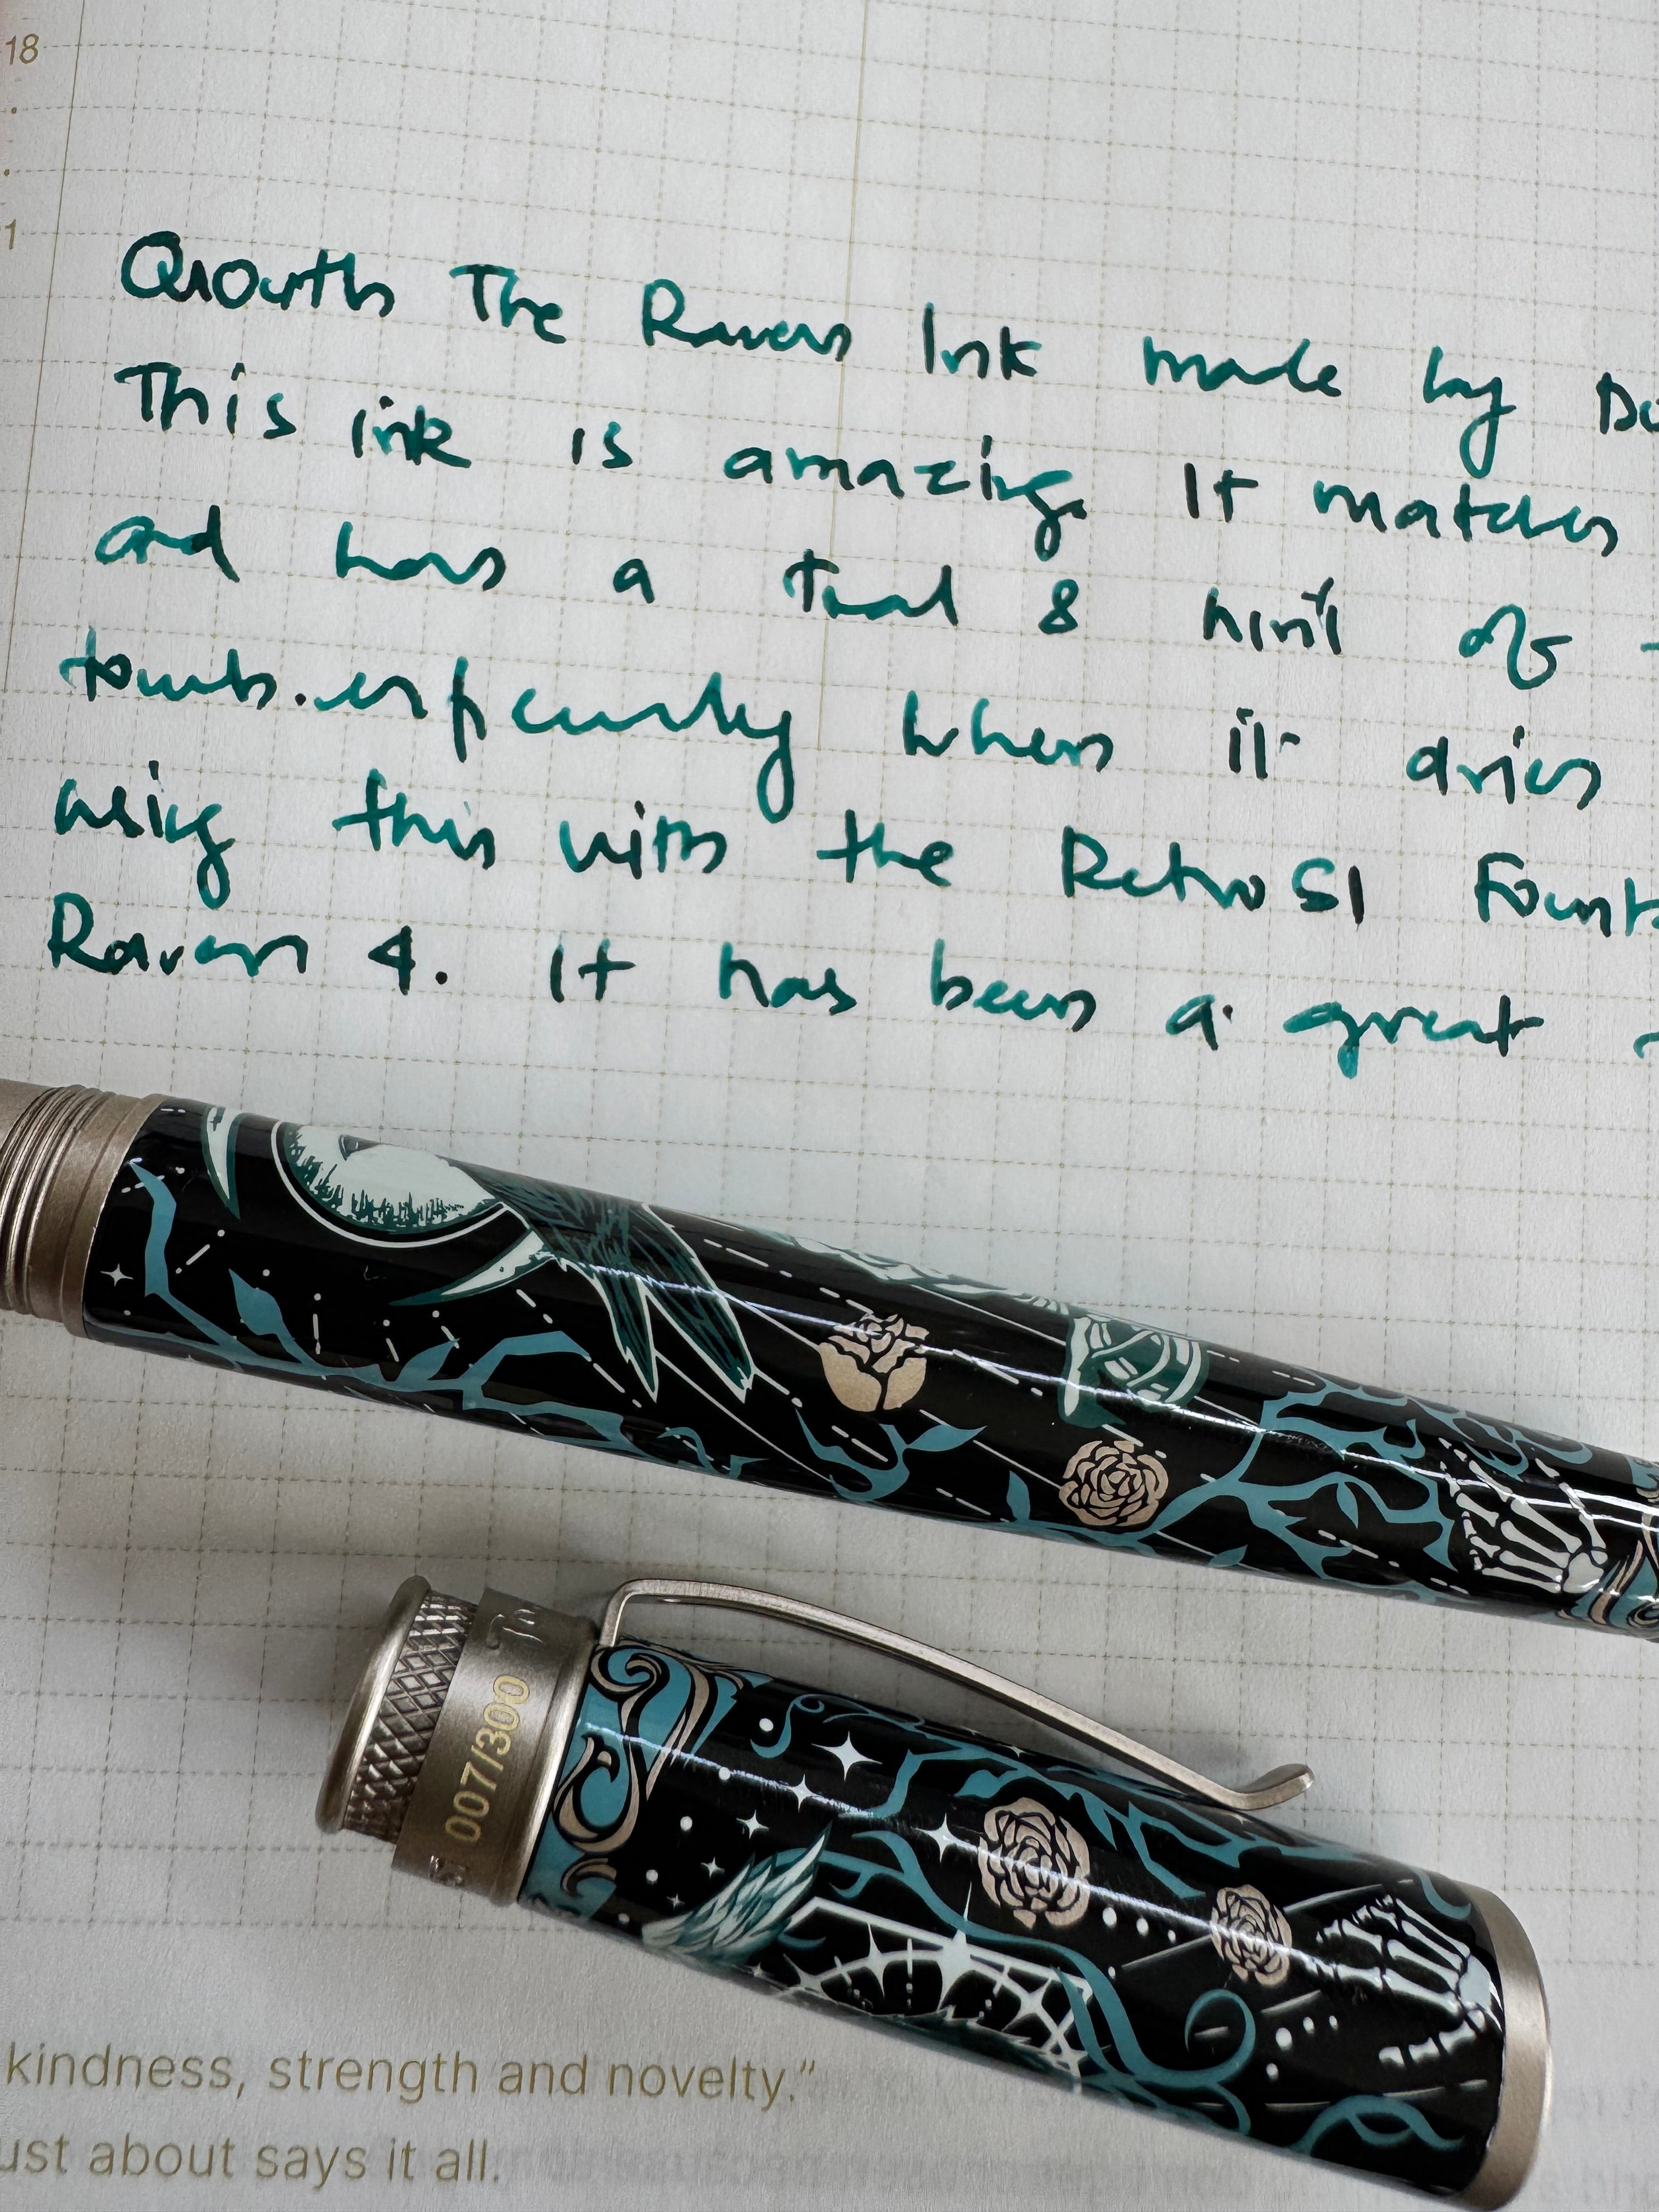 18
1
Quouth The Raven Ink made by
This ink is amazing. It matches
and has a teal & hint of
tomb. especially when it dries
using this with the Retro 51 Fount
Raven 4. It has been a great
007/300
kindness, strength and novelty.”
ust about says it all.